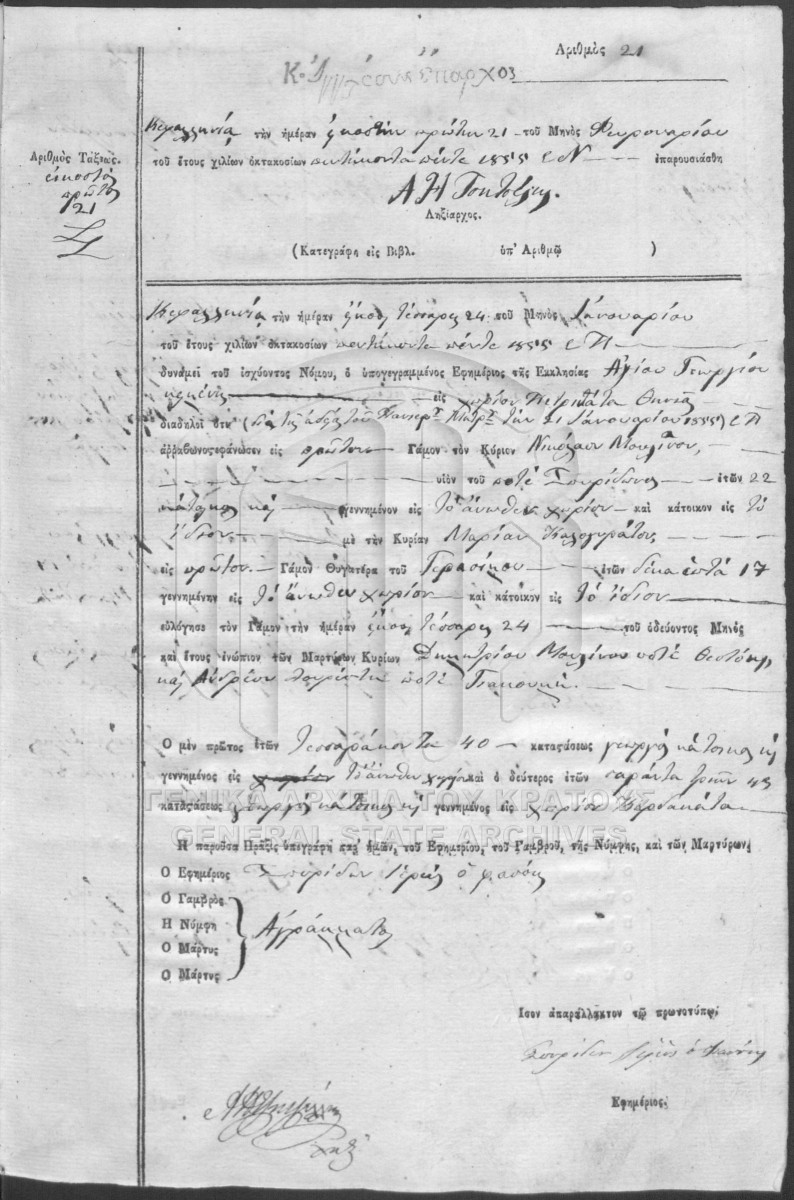 Ἀριθμὸς 21
Ἀριθμὸς Τάξεως.
εἰκοστὸς
πρῶτος
21
Κεφαλληνία τὴν ἡμέραν εἰκοστὴν πρώτην 21 τοῦ Μηνὸς Φευρουαρίου
τοῦ ἔτους χιλίων ὀκτακοσίων πεντήκοντα πέντε 1855 Ε.Ν. ἐπαρουσιάσθη
Ληξίαρχος.
(Κατεγράφη εἰς Βιβλ. ὑπ' Ἀριθμῷ )
Κεφαλληνία τὴν ἡμέραν εἰκοσι τέσσαρες 24 τοῦ Μηνὸς Ἰανουαρίου
τοῦ ἔτους χιλίων ὀκτακοσίων πεντήκοντα πέντε 1855 Ε.Π.
δυνάμει τοῦ ἰσχύοντος Νόμου, ὁ ὑπογεγραμμένος Ἐφημέριος τῆς Ἐκκλησίας Ἁγίου Γεωργίου
κειμένης εἰς χωρίον Πετρικάτα Θηνιᾶς
διαδηλοῖ ὅτι (διὰ τῆς ἀδείας τοῦ Πανιερ. Μητρ. τὴν 21 Ἰανουαρίου 1855) Ε.Π.
ἀῤῥαβωνοστεφάνωσεν εἰς πρῶτον Γάμον τὸν Κύριον Νικόλαον Μουλῖνον,
υἱὸν τοῦ ποτὲ Σπυρίδωνος ἐτῶν 22
κάτοικος καὶ γεννημένον εἰς τὸ ἄνωθεν χωρίον καὶ κάτοικον εἰς τὸ
ἴδιον μὲ τὴν Κυρίαν Μαρίαν Καλογηράτου
εἰς πρῶτον Γάμον Θυγατέρα τοῦ Γερασίμου ἐτῶν δέκα ἑπτά 17
γεννημένην εἰς τὸ ἄνωθεν χωρίον καὶ κάτοικον εἰς τὸ ἴδιον
εὐλόγησε τὸν Γάμον τὴν ἡμέραν εἰκοσι τέσσαρες 24 τοῦ ὁδεύοντος Μηνὸς
καὶ ἔτους ἐνώπιον τῶν Μαρτύρων Κυρίων Δημητρίου Μουλίνου ποτὲ Θεοτόκη,
καὶ Ἀνδρέου ποτὲ
Ὁ μὲν πρῶτος ἐτῶν τεσσαράκοντα 40 καταστάσεως γεωργὸς κάτοικος καὶ
γεννημένος εἰς τὸ ἄνωθεν χωρίον καὶ ὁ δεύτερος ἐτῶν σαράντα τριῶν 43
καταστάσεως γεωργὸς κάτοικος καὶ γεννημένος εἰς χωρίον Καρδακάτα
ΓΕΝΙΚΑ ΑΡΧΕΙΑ ΤΟΥ ΚΡΑΤΟΥΣ
GENERAL STATE ARCHIVES
Ἡ παροῦσα Πρᾶξις ὑπεγράφη παρ' ἡμῶν, τοῦ Ἐφημερίου, τοῦ Γαμβροῦ, τῆς Νύμφης, καὶ τῶν Μαρτύρων.
Ὁ Ἐφημέριος Σπυρίδων Ἱερεὺς ὁ
Ὁ Γαμβρὸς
Ἡ Νύμφη Ἀγράμματοι
Ὁ Μάρτυς
Ὁ Μάρτυς
Ἴσον ἀπαράλλακτον τῷ πρωτοτύπῳ.
Σπυρίδων Ἱερεὺς ὁ
Ἐφημέριος.